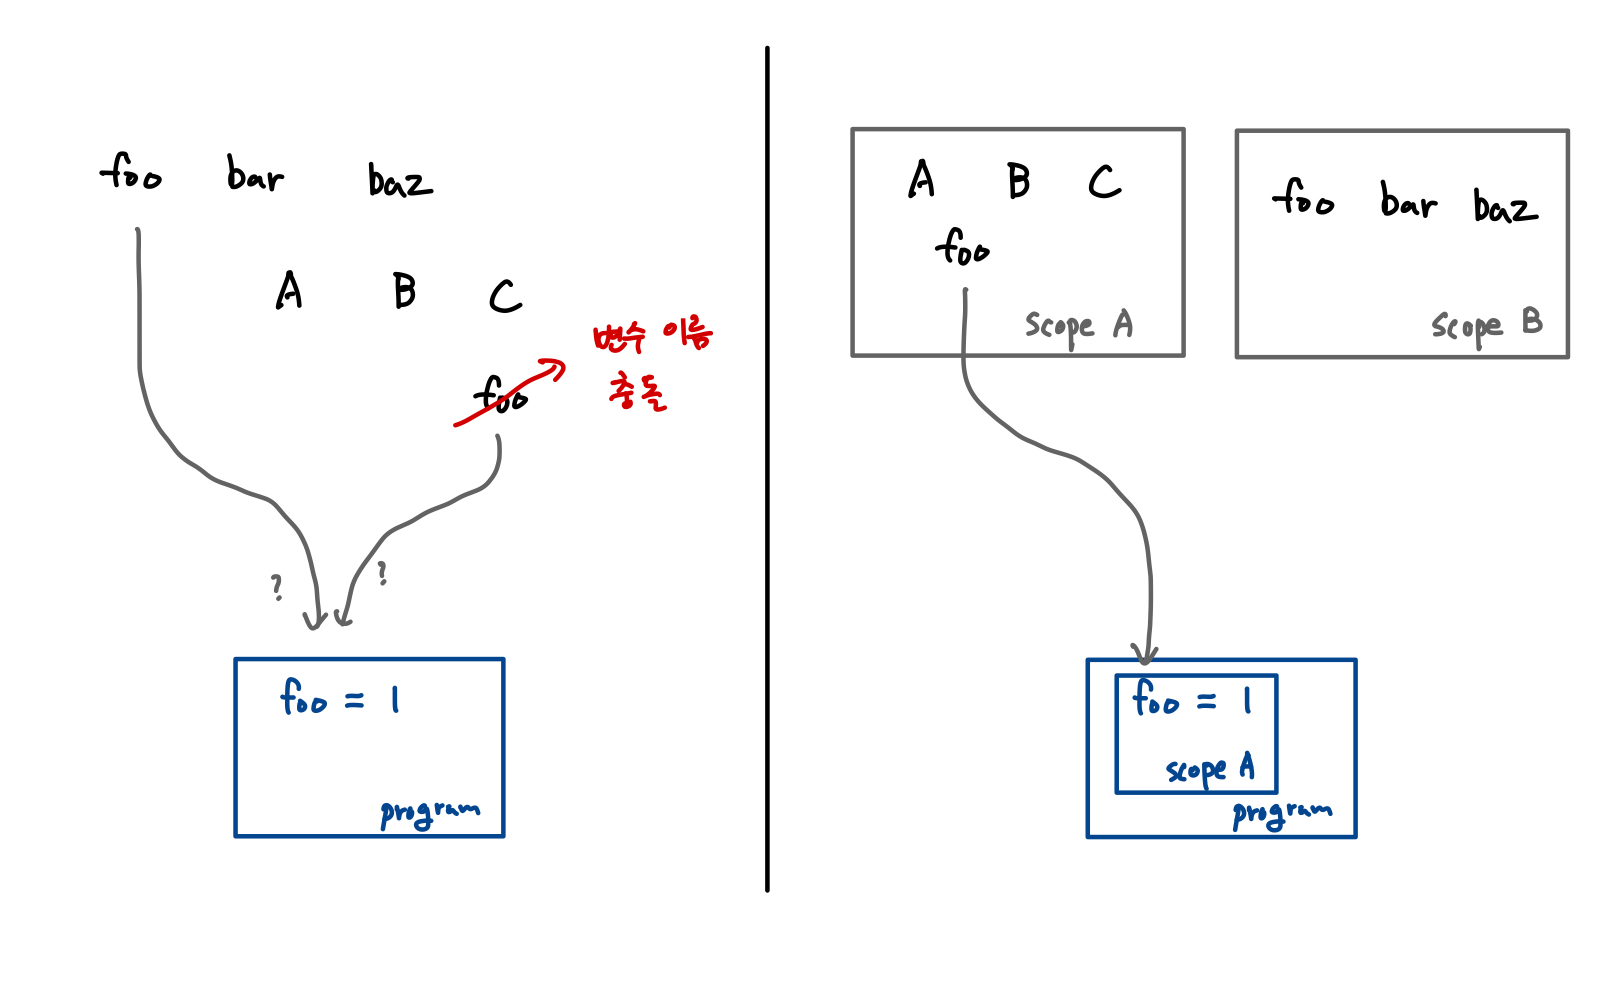 foo bar baz
A B C
변수 이름
충돌
foo
?
?
foo = 1
program
A B C
foo
scope A
foo bar baz
scope B
foo = 1
scope A
program